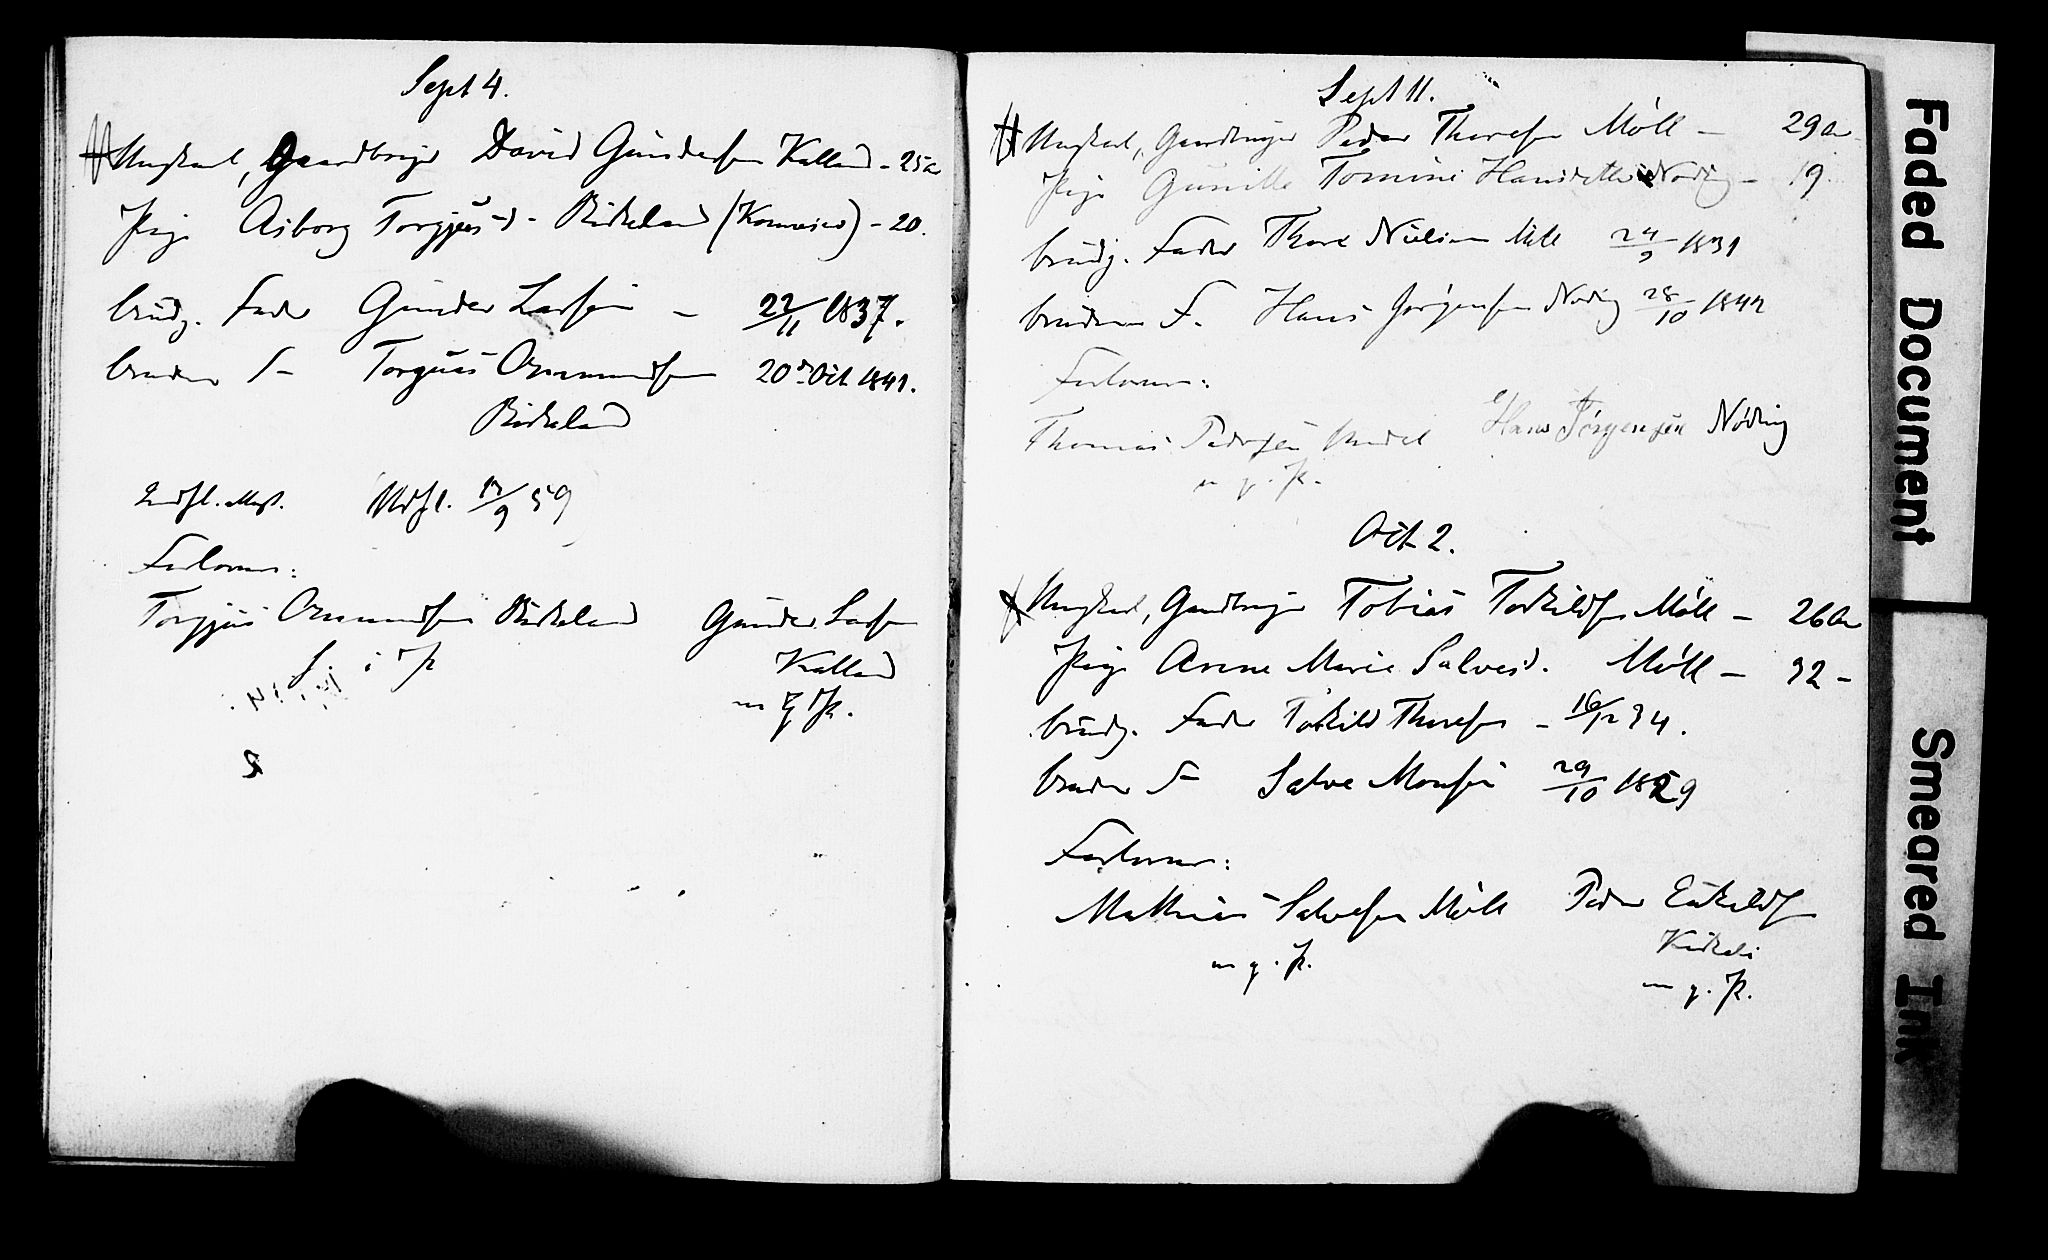 Sept 4.
Ungkarl, Gaardbruger David Gundersen Kalland - 25 a
Pige Asborg Torgjusd. Birkeland (Konnesmo) - 20.
brudg. Fader Gunder Larsen - 22/11 1837.
brudens F - Torgius Omundsen 20de Oct 1841.
Birkeland
Indfl. Att. Udfl. 12/9 59
Forlovere:
Torgjus Omundsen Birkeland Gunder Larsen
Kalland
m. p. P.
Sept 11.
Ungkarl, Gaardbruger Peder Thoresen Møll - 29 Aar
Pige Gunille Tomine Hansdatter Nøding - 19.
brudg. Fader Thore Nielsen Møll 24/9 1831
brudens F. Hans Jørgensen Nøding 28/10 1842
Forlovere:
Thomas Pedersen Hans Jørgensen Nøding
m. p. P.
Oct 2.
Ungkarl, Gaardbruger Tobias Torkildsen Møll - 26 Aar
Pige Anne Marie Salvesd. Møll - 32 -
brudg. Fader Torkild Thoresen - 16/12 34.
brudens F - Salve Monsen 29/10 1829
Forlovere:
Mathias Salvesen Møll Peder Eskildsen
m. p. P.
m. p. P.
Faded Document
Smeared Ink